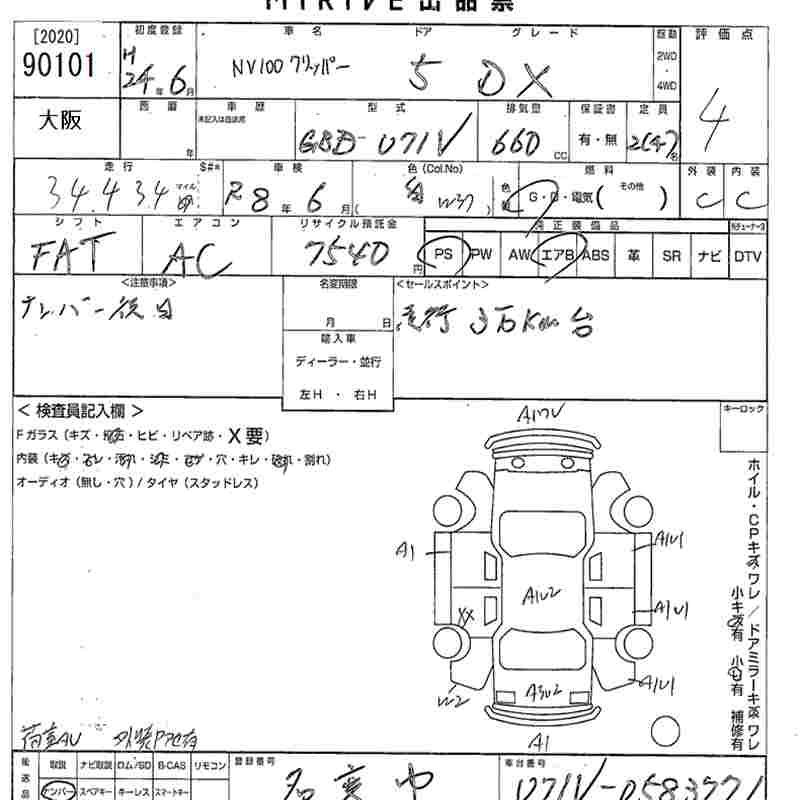 MIRIVE出品票
[2020]
90101
初度登録
H
24年6月
車名
NV100 クリッパー
ドア
5
グレード
DX
駆動
2WD
・
4WD
評価点
4
大阪
西暦
年
車歴
未記入は自家用
型式
GBD-U71V
排気量
660
CC
保証書
有・無
定員
2(4)名
走行
34,434
マイル
車検
R8年6月(
色(Col.No)
白 W37 )
色替
燃料
G・D・電気( その他 )
外装
C
内装
C
シフト
FAT
エアコン
AC
リサイクル預託金
7540円
純正装備品
PS PW AW エアB ABS 革 SR ナビ
DTV
<注意事項>
ナンバー後日
名変期限
月 日
輸入車
ディーラー・並行
左H ・ 右H
<セールスポイント>
走行 3万Km台
< 検査員記入欄 >
Fガラス(キズ・飛石・ヒビ・リペア跡・X要)
内装(キズ・スレ・汚れ・シミ・コゲ・穴・キレ・破れ・割れ)
オーディオ(無し・穴)/タイヤ(スタッドレス)
キーロック
A1
A1U1
A1U2
XX
A1U1
A1U1
W2
A3U2
A1
ホイル・CPキズワレ/ドアミラーキズワレ
小キズ有 小凹有 補修有
荷室AU
後送品
取説 ナビ取説 ロム/SD B-CAS リモコン
ナンバー スペアキー キーレス スマートキー
登録番号
車台番号
U71V-0583771